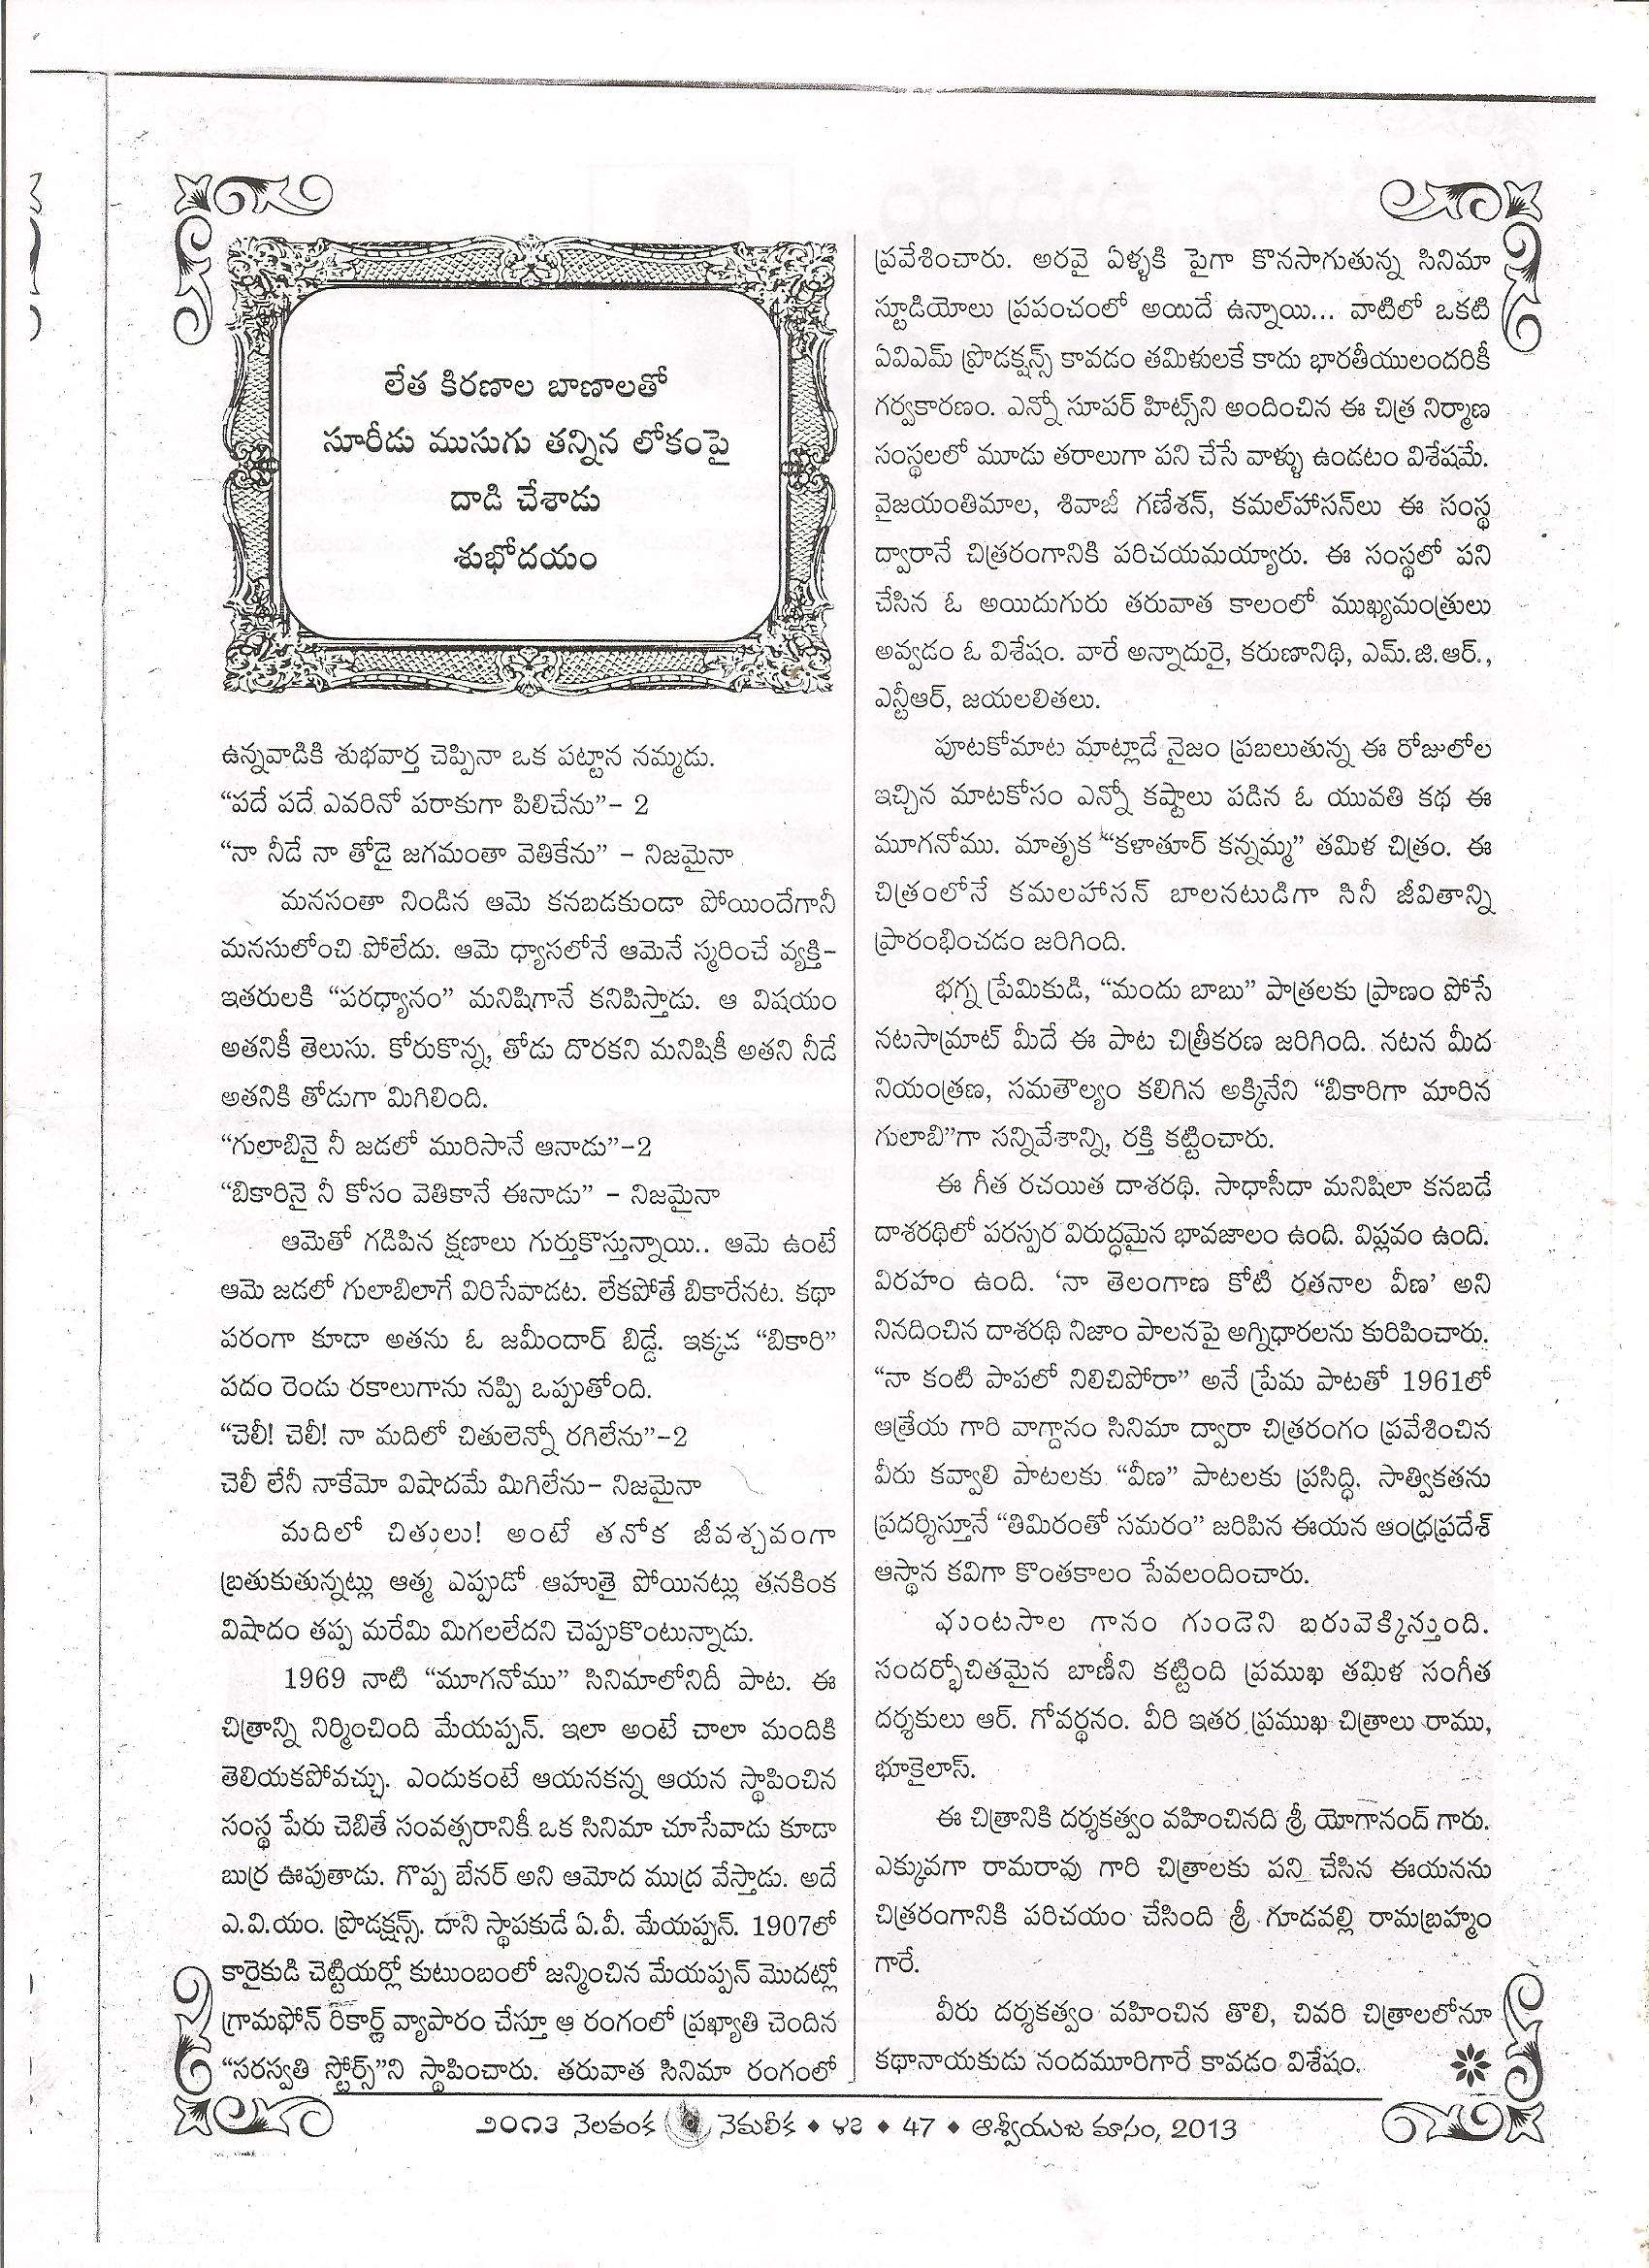 లేత కిరణాల బాణాలతో
సూరీడు ముసుగు తన్నిన లోకంపై
దాడి చేశాడు
శుభోదయం
ఉన్నవాడికి శుభవార్త చెప్పినా ఒక పట్టాన నమ్మడు.
“పదే పదే ఎవరినో పరాకుగా పిలిచేను”– 2
“నా నీడే నా తోడై జగమంతా వెతికేను” – నిజమైనా
మనసంతా నిండిన ఆమె కనబడకుండా పోయిందేగానీ
మనసులోంచి పోలేదు. ఆమె ధ్యాసలోనే ఆమెనే స్మరించే వ్యక్తి–
ఇతరులకి “పరధ్యానం” మనిషిగానే కనిపిస్తాడు. ఆ విషయం
అతనికీ తెలుసు. కోరుకొన్న, తోడు దొరకని మనిషికీ అతని నీడే
అతనికి తోడుగా మిగిలింది.
“గులాబినై నీ జడలో మురిసానే ఆనాడు”–2
“బికారినై నీ కోసం వెతికానే ఈనాడు” – నిజమైనా
ఆమెతో గడిపిన క్షణాలు గుర్తుకొస్తున్నాయి.. ఆమె ఉంటే
ఆమె జడలో గులాబిలాగే విరిసేవాడట. లేకపోతే బికారేనట. కథా
పరంగా కూడా అతను ఓ జమీందార్ బిడ్డే. ఇక్కడ “బికారి”
పదం రెండు రకాలుగాను నప్పి ఒప్పుతోంది.
“చెలీ! చెలీ! నా మదిలో చితులెన్నో రగిలేను”–2
చెలీ లేనీ నాకేమో విషాదమే మిగిలేను– నిజమైనా
మదిలో చితులు! అంటే తనోక జీవశ్చవంగా
బ్రతుకుతున్నట్లు ఆత్మ ఎప్పుడో ఆహుతై పోయినట్లు తనకింక
విషాదం తప్ప మరేమి మిగలలేదని చెప్పుకొంటున్నాడు.
1969 నాటి “మూగనోము” సినిమాలోనిదీ పాట. ఈ
చిత్రాన్ని నిర్మించింది మేయప్పన్. ఇలా అంటే చాలా మందికి
తెలియకపోవచ్చు. ఎందుకంటే ఆయనకన్న ఆయన స్థాపించిన
సంస్థ పేరు చెబితే సంవత్సరానికీ ఒక సినిమా చూసేవాడు కూడా
బుర్ర ఊపుతాడు. గొప్ప బేనర్ అని ఆమోద ముద్ర వేస్తాడు. అదే
ఎ.వి.యం. ప్రొడక్షన్స్. దాని స్థాపకుడే ఏ.వీ. మేయప్పన్. 1907లో
కారైకుడి చెట్టియర్లో కుటుంబంలో జన్మించిన మేయప్పన్ మొదట్లో
గ్రామఫోన్ రికార్డ్ వ్యాపారం చేస్తూ ఆ రంగంలో ప్రఖ్యాతి చెందిన
“సరస్వతి స్టోర్స్”ని స్థాపించారు. తరువాత సినిమా రంగంలో
ప్రవేశించారు. అరవై ఏళ్ళకి పైగా కొనసాగుతున్న సినిమా
స్టూడియోలు ప్రపంచంలో అయిదే ఉన్నాయి... వాటిలో ఒకటి
ఏవిఎమ్ ప్రొడక్షన్స్ కావడం తమిళులకే కాదు భారతీయులందరికీ
గర్వకారణం. ఎన్నో సూపర్ హిట్స్‌ని అందించిన ఈ చిత్ర నిర్మాణ
సంస్థలలో మూడు తరాలుగా పని చేసే వాళ్ళు ఉండటం విశేషమే.
వైజయంతిమాల, శివాజీ గణేశన్, కమల్‌హాసన్‌లు ఈ సంస్థ
ద్వారానే చిత్రరంగానికి పరిచయమయ్యారు. ఈ సంస్థలో పని
చేసిన ఓ అయిదుగురు తరువాత కాలంలో ముఖ్యమంత్రులు
అవ్వడం ఓ విశేషం. వారే అన్నాదురై, కరుణానిధి, ఎమ్.జి.ఆర్.,
ఎన్టీఆర్, జయలలితలు.
పూటకోమాట మాట్లాడే నైజం ప్రబలుతున్న ఈ రోజులోల
ఇచ్చిన మాటకోసం ఎన్నో కష్టాలు పడిన ఓ యువతి కథ ఈ
మూగనోము. మాతృక “కళాతూర్ కన్నమ్మ” తమిళ చిత్రం. ఈ
చిత్రంలోనే కమలహాసన్ బాలనటుడిగా సినీ జీవితాన్ని
ప్రారంభించడం జరిగింది.
భగ్న ప్రేమికుడి, “మందు బాబు” పాత్రలకు ప్రాణం పోసే
నటసామ్రాట్ మీదే ఈ పాట చిత్రీకరణ జరిగింది. నటన మీద
నియంత్రణ, సమతౌల్యం కలిగిన అక్కినేని “బికారిగా మారిన
గులాబి”గా సన్నివేశాన్ని, రక్తి కట్టించారు.
ఈ గీత రచయిత దాశరథి. సాధాసీదా మనిషిలా కనబడే
దాశరథిలో పరస్పర విరుద్ధమైన భావజాలం ఉంది. విప్లవం ఉంది.
విరహం ఉంది. ‘నా తెలంగాణ కోటి రతనాల వీణ’ అని
నినదించిన దాశరథి నిజాం పాలనపై అగ్నిధారలను కురిపించారు.
“నా కంటి పాపలో నిలిచిపోరా” అనే ప్రేమ పాటతో 1961లో
ఆత్రేయ గారి వాగ్దానం సినిమా ద్వారా చిత్రరంగం ప్రవేశించిన
వీరు కవ్వాలి పాటలకు “వీణ” పాటలకు ప్రసిద్ధి. సాత్వికతను
ప్రదర్శిస్తూనే “తిమిరంతో సమరం” జరిపిన ఈయన ఆంధ్రప్రదేశ్
ఆస్థాన కవిగా కొంతకాలం సేవలందించారు.
ఘంటసాల గానం గుండెని బరువెక్కిస్తుంది.
సందర్భోచితమైన బాణీని కట్టింది ప్రముఖ తమిళ సంగీత
దర్శకులు ఆర్. గోవర్థనం. వీరి ఇతర ప్రముఖ చిత్రాలు రాము,
భూకైలాస్.
ఈ చిత్రానికి దర్శకత్వం వహించినది శ్రీ యోగానంద్ గారు.
ఎక్కువగా రామరావు గారి చిత్రాలకు పని చేసిన ఈయనను
చిత్రరంగానికి పరిచయం చేసింది శ్రీ గూడవల్లి రామబ్రహ్మం
గారే.
వీరు దర్శకత్వం వహించిన తొలి, చివరి చిత్రాలలోనూ
కథానాయకుడు నందమూరిగారే కావడం విశేషం.
౨౦౧౩ నెలవంక నెమలీక ♦ ౪౭ ♦ 47 ♦ ఆశ్వీయుజ మాసం, 2013